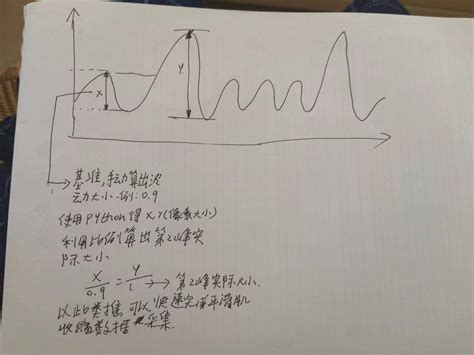 x
y
基准,手动算出波
动大小.例:0.9
使用Python得x,y(像素大小)
利用比例算出第2山峰实
际大小
x/0.9 = y/( → 第2山峰实际大小.
以此类推,可以快速完成平滑肌
收缩数据采集.